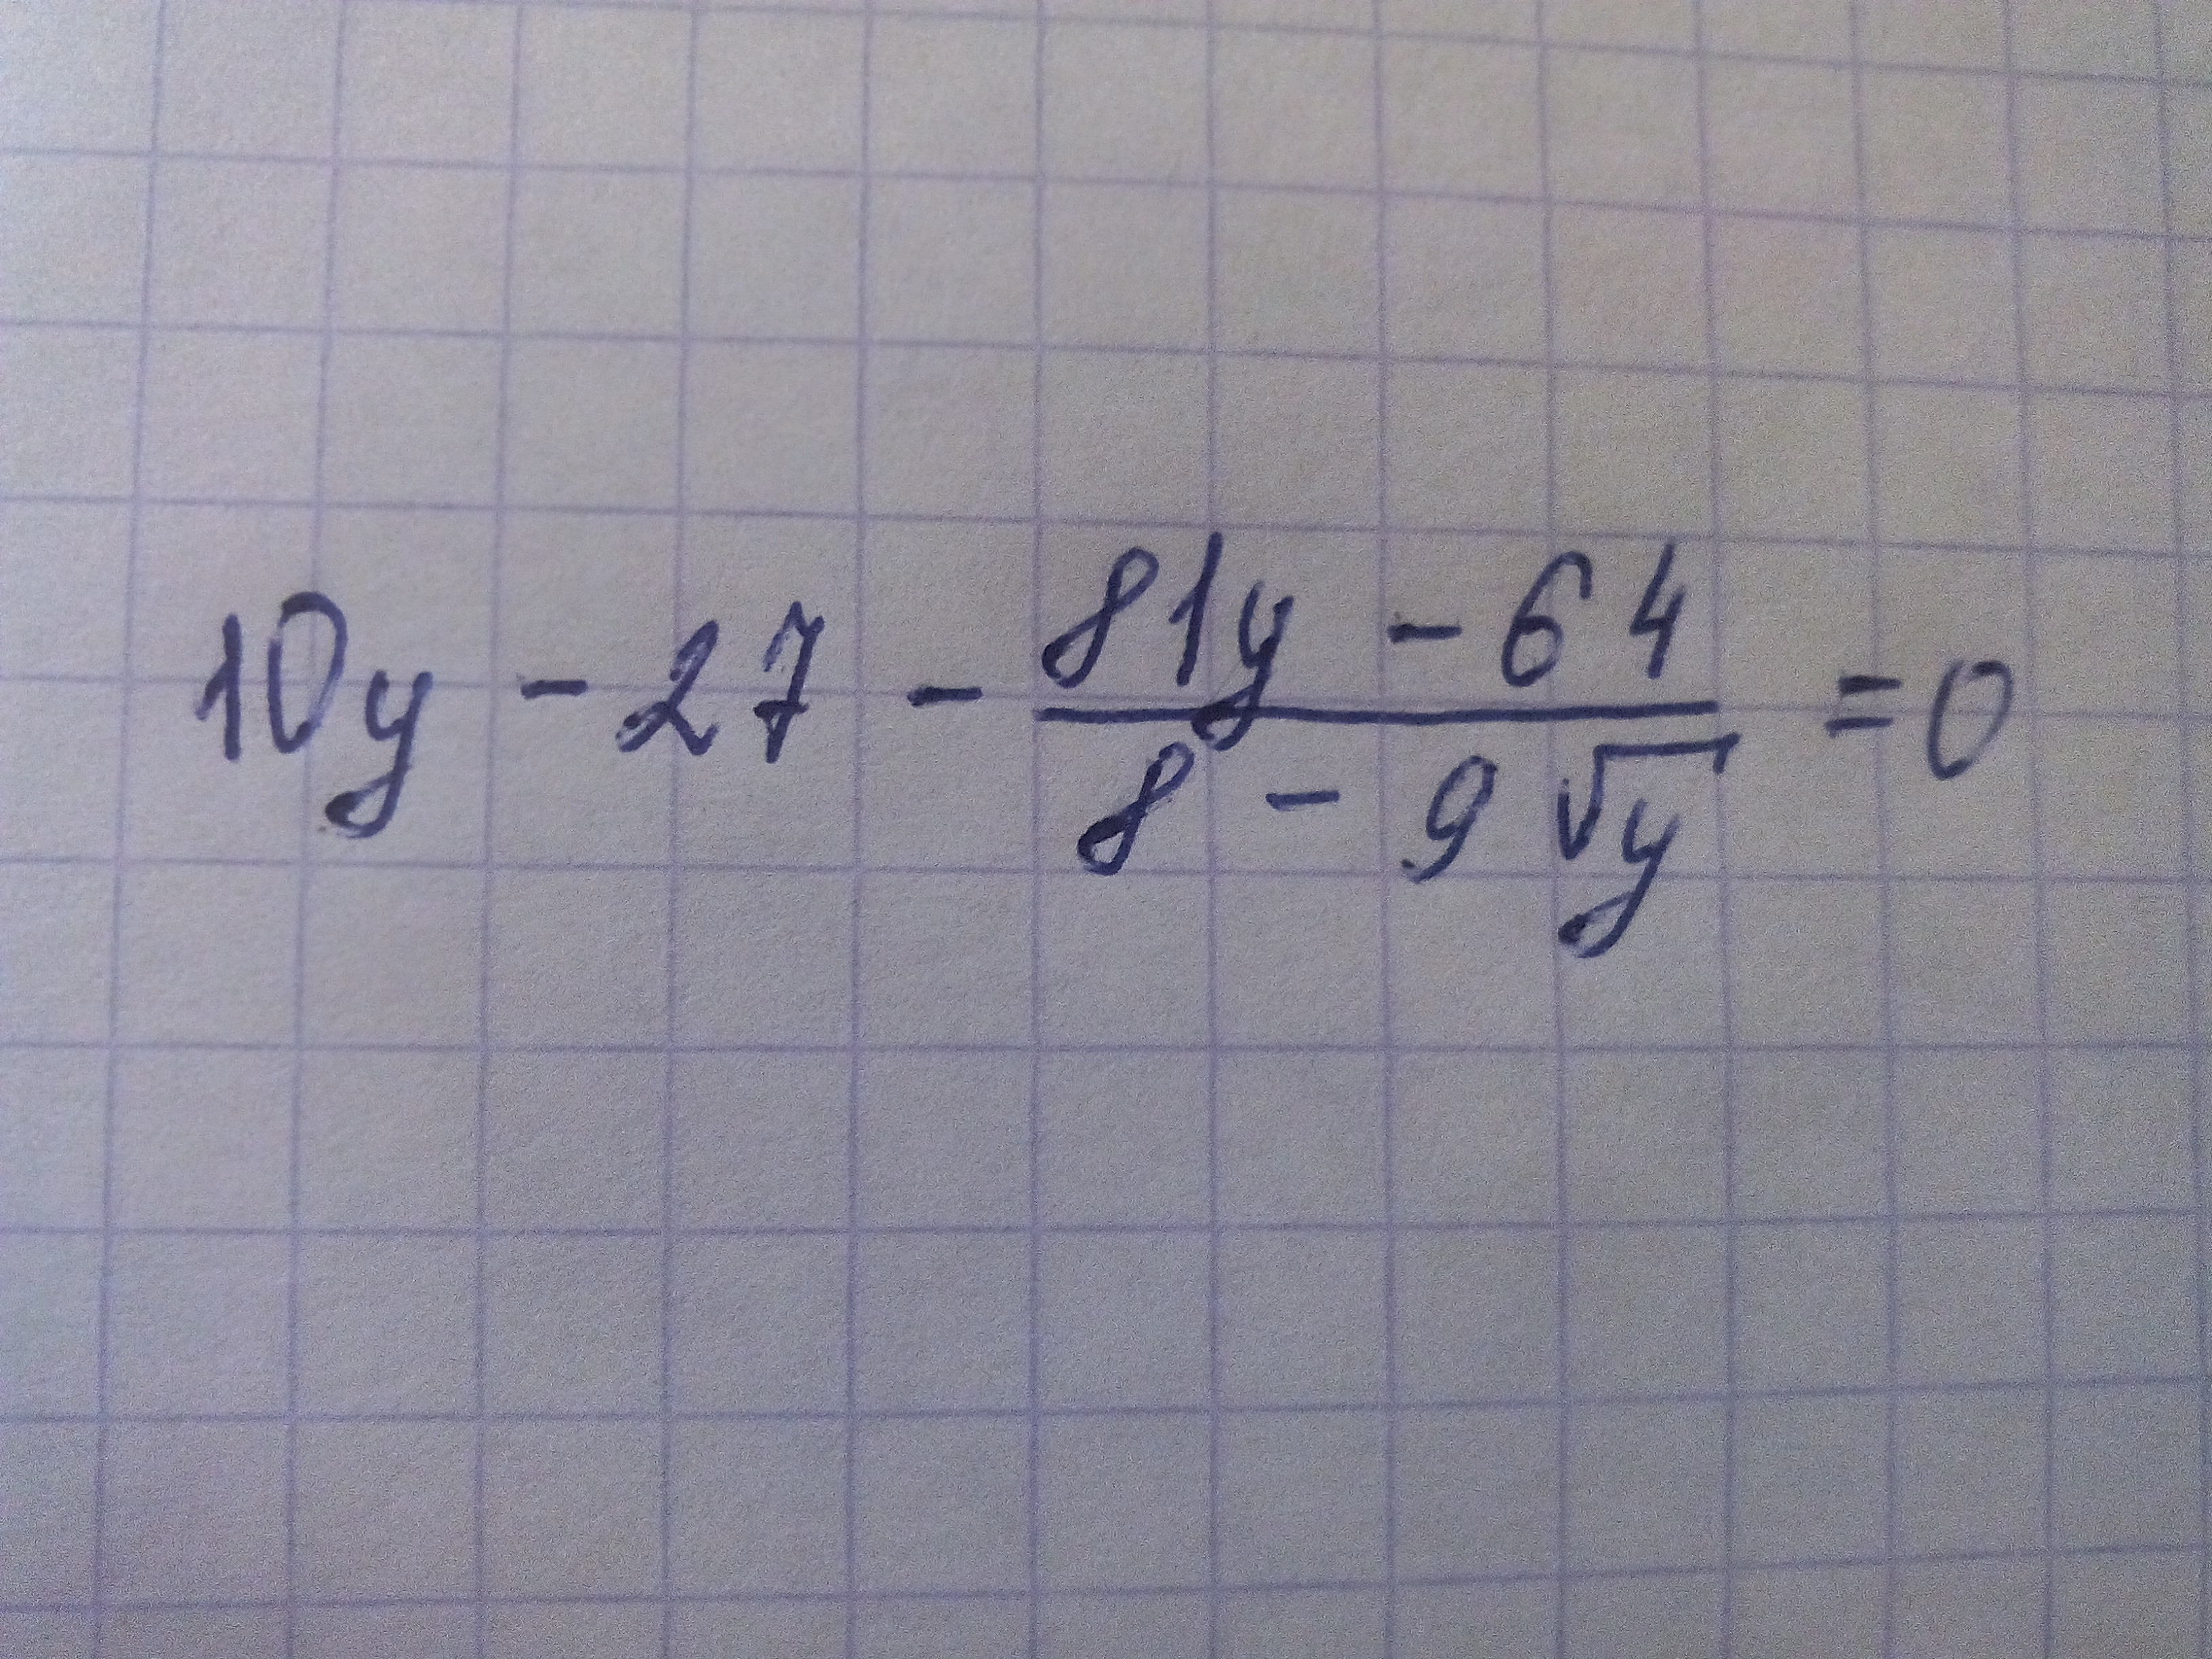 10y - 27 - \frac{81y - 64}{8 - 9\sqrt{y}} = 0